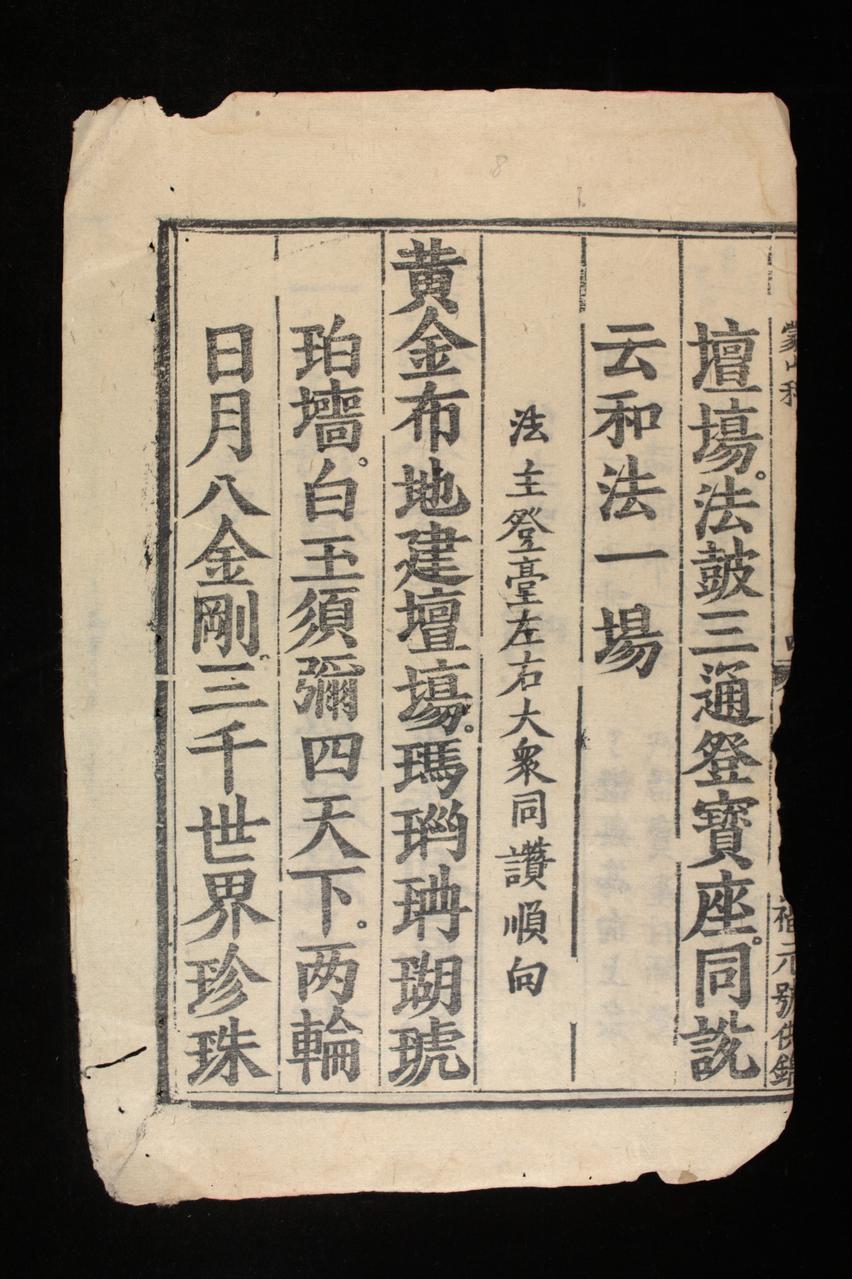 蒙山科 福元號供錦
壇塲。法皷三通登寳座。同說
云和法一場
法主登臺左右大衆同讚順向
黄金布地建壇塲。瑪瑙珊瑚琥
珀墻。白玉須彌四天下。两輪
日月八金剛。三千世界珍珠
8